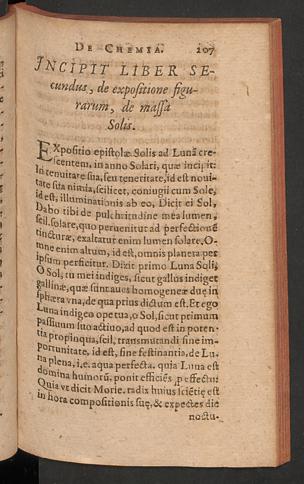 DE CHEMIA. 207
INCIPIT LIBER SE-
cundus, de expositione figu-
rarum, de massa
Solis.
EXpositio epistolæ Solis ad Lunã cre-
scentem, in anno Solari, quæ incipit:
In tenuitate sua, seu teneritate, id est noui-
tate sua nimia, scilicet, coniugii cum Sole,
id est, illuminationis ab eo, Dicit ei Sol,
Dabo tibi de pulchritudine mea lumen,
scil. solare, quo peruenitur ad perfectionē
tincturæ, exaltatur enim lumen solare, O-
mne enim altum, id est, omnis planeta per
ipsum perficitur. Dixit primo Luna Soli,
O Sol, tu mei indiges, sicut gallus indiget
gallinæ, quæ sunt aues homogeneæ duę in
sphæra vna, de qua prius dictum est. Et ego
Luna indigeo ope tua, o Sol, sicut primum
passiuum suo actiuo, ad quod est in poten-
tia propinqua, scil, transmutandi sine im-
portunitate, id est, sine festinantia, de Lu-
na plena, i.e. aqua perfecta. quia Luna est
domina humorũ, ponit efficiēs perfectũ:
Quia vt dicit Morie. radix huius sciẽtię est
in hora compositionis suę, & expectes die
noctu-